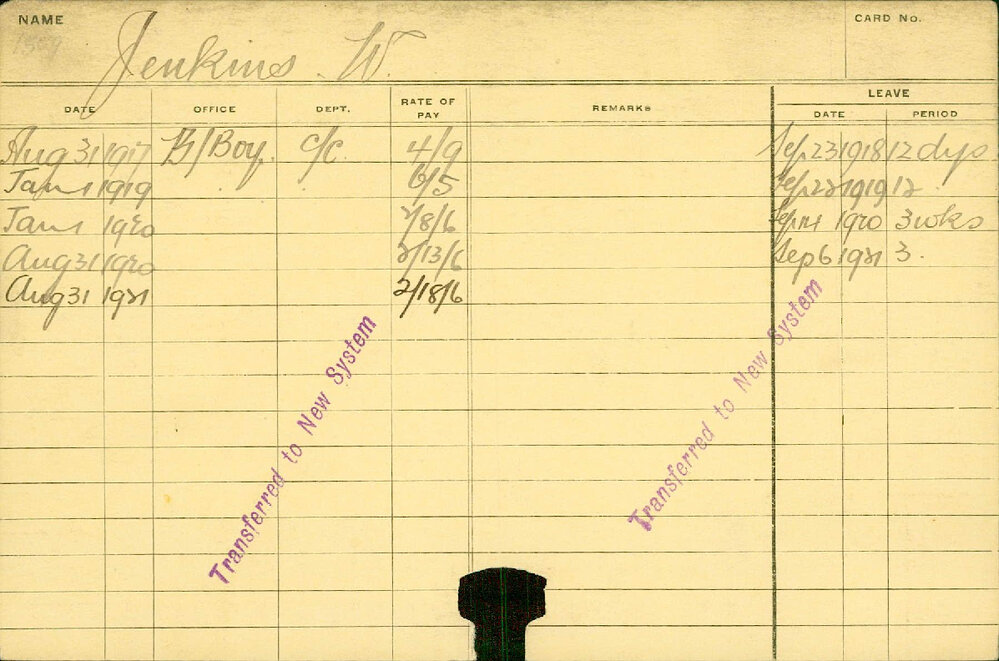 NAME CARD No.
1509
Jenkins W.
DATE OFFICE DEPT. RATE OF PAY REMARKS LEAVE
DATE PERIOD
Aug 31 1917 B/Boy. c/c 4/9 Sep. 23 1918 12 dys
Jan 1 1919 6/5 Sep. 22 1919 12
Jan 1 1920 2/8/6 Sep 14 1920 3 wks
Aug 31 1920 2/13/6 Sep 6 1921 3.
Aug 31 1921 2/18/6
Transferred to New System
Transferred to New System